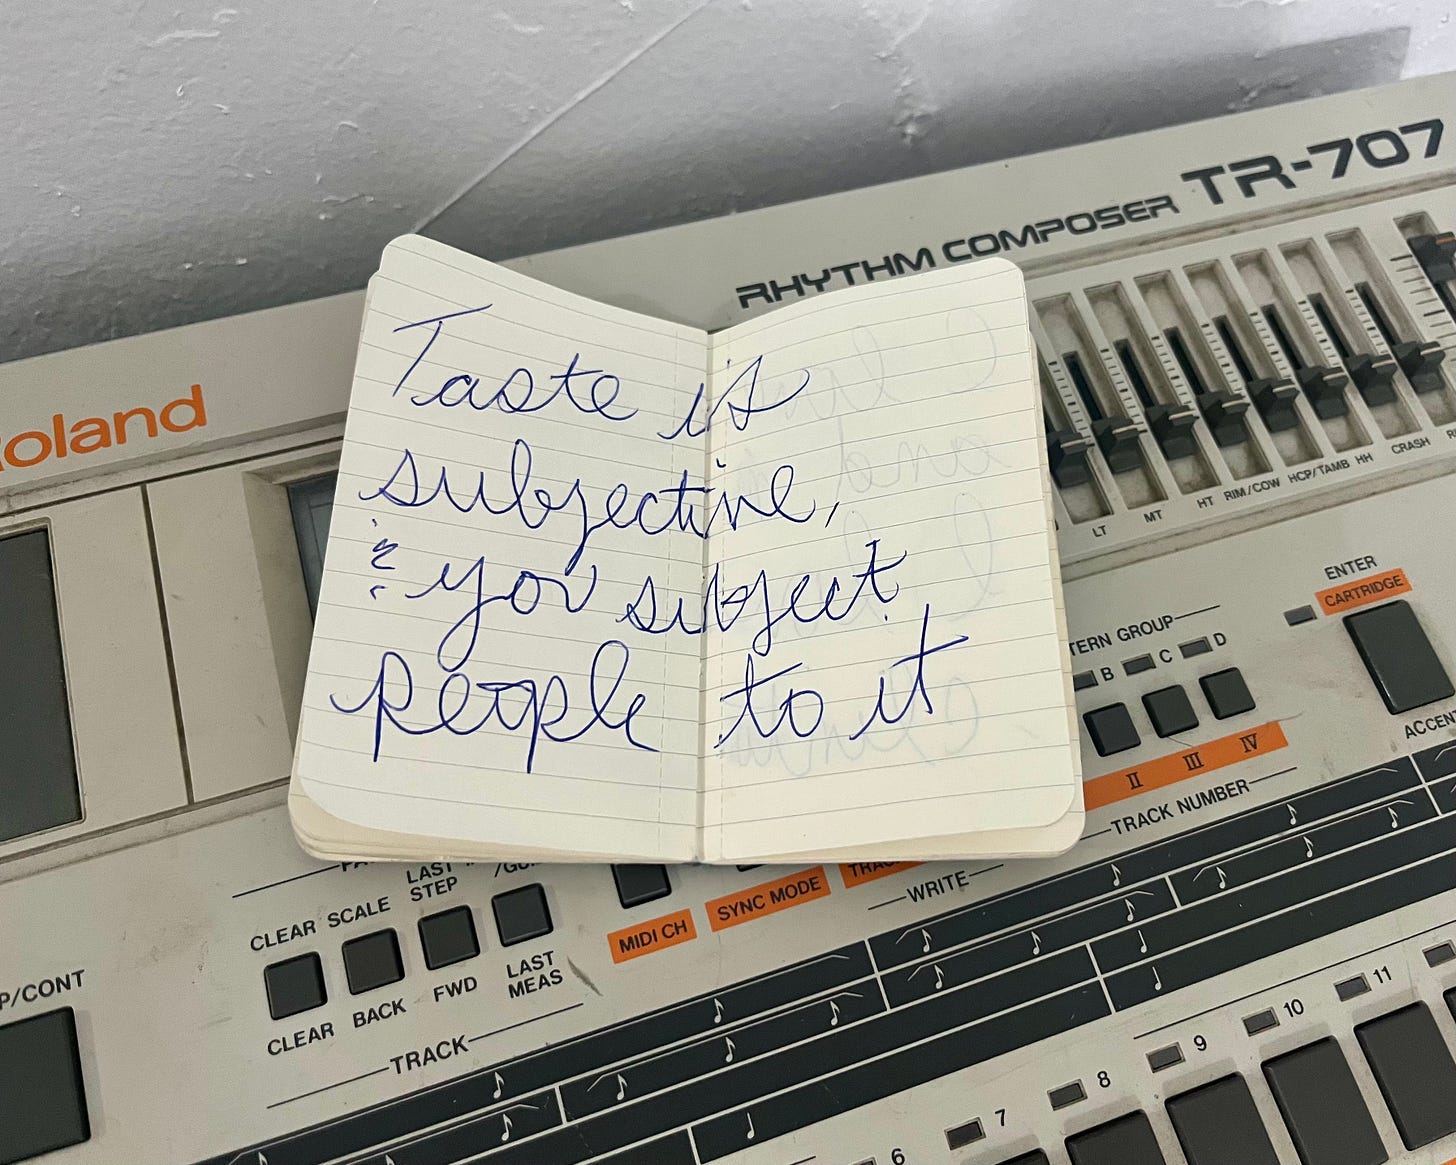 Taste is
subjective,
& you subject
people to it
Roland
RHYTHM COMPOSER TR-707
LT MT HT RIM/COW HCP/TAMB HH CRASH
ENTER
CARTRIDGE
B C D
II III IV
TRACK NUMBER
WRITE
LAST
STEP
CLEAR SCALE
MIDI CH SYNC MODE
CLEAR BACK FWD LAST
MEAS
TRACK
P/CONT
6 7 8 9 10 11